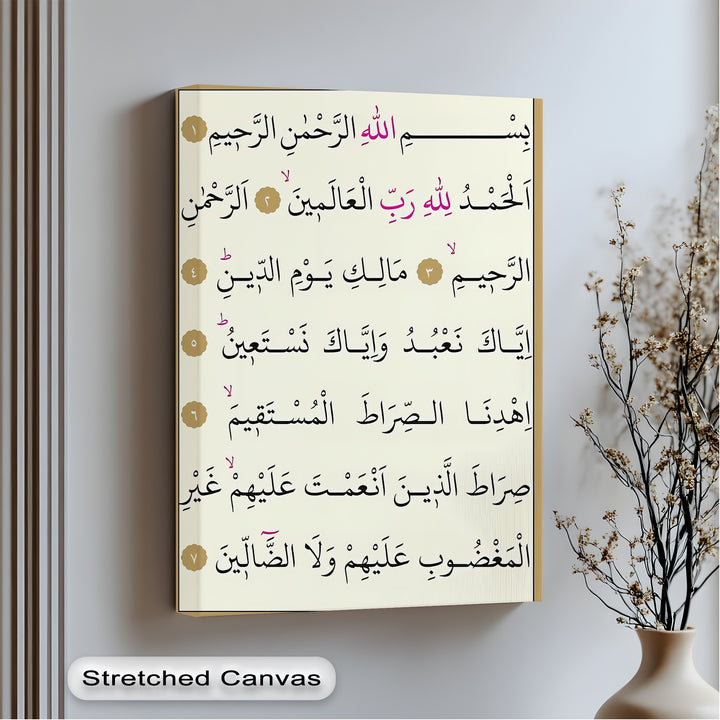 بِسْــــــــمِ اللّٰهِ الرَّحْمٰنِ الرَّح۪يمِ ١
اَلْحَمْدُ لِلّٰهِ رَبِّ الْعَالَم۪ينَۙ ٢ اَلرَّحْمٰنِ
الرَّح۪يمِۙ ٣ مَالِكِ يَوْمِ الدّ۪ينِۜ ٤
اِيَّاكَ نَعْبُدُ وَاِيَّاكَ نَسْتَع۪ينُۜ ٥
اِهْدِنَا الصِّرَاطَ الْمُسْتَق۪يمَۙ ٦
صِرَاطَ الَّذ۪ينَ اَنْعَمْتَ عَلَيْهِمْۙ غَيْرِ
الْمَغْضُوبِ عَلَيْهِمْ وَلَا الضَّٓالّ۪ينَ ٧
Stretched Canvas